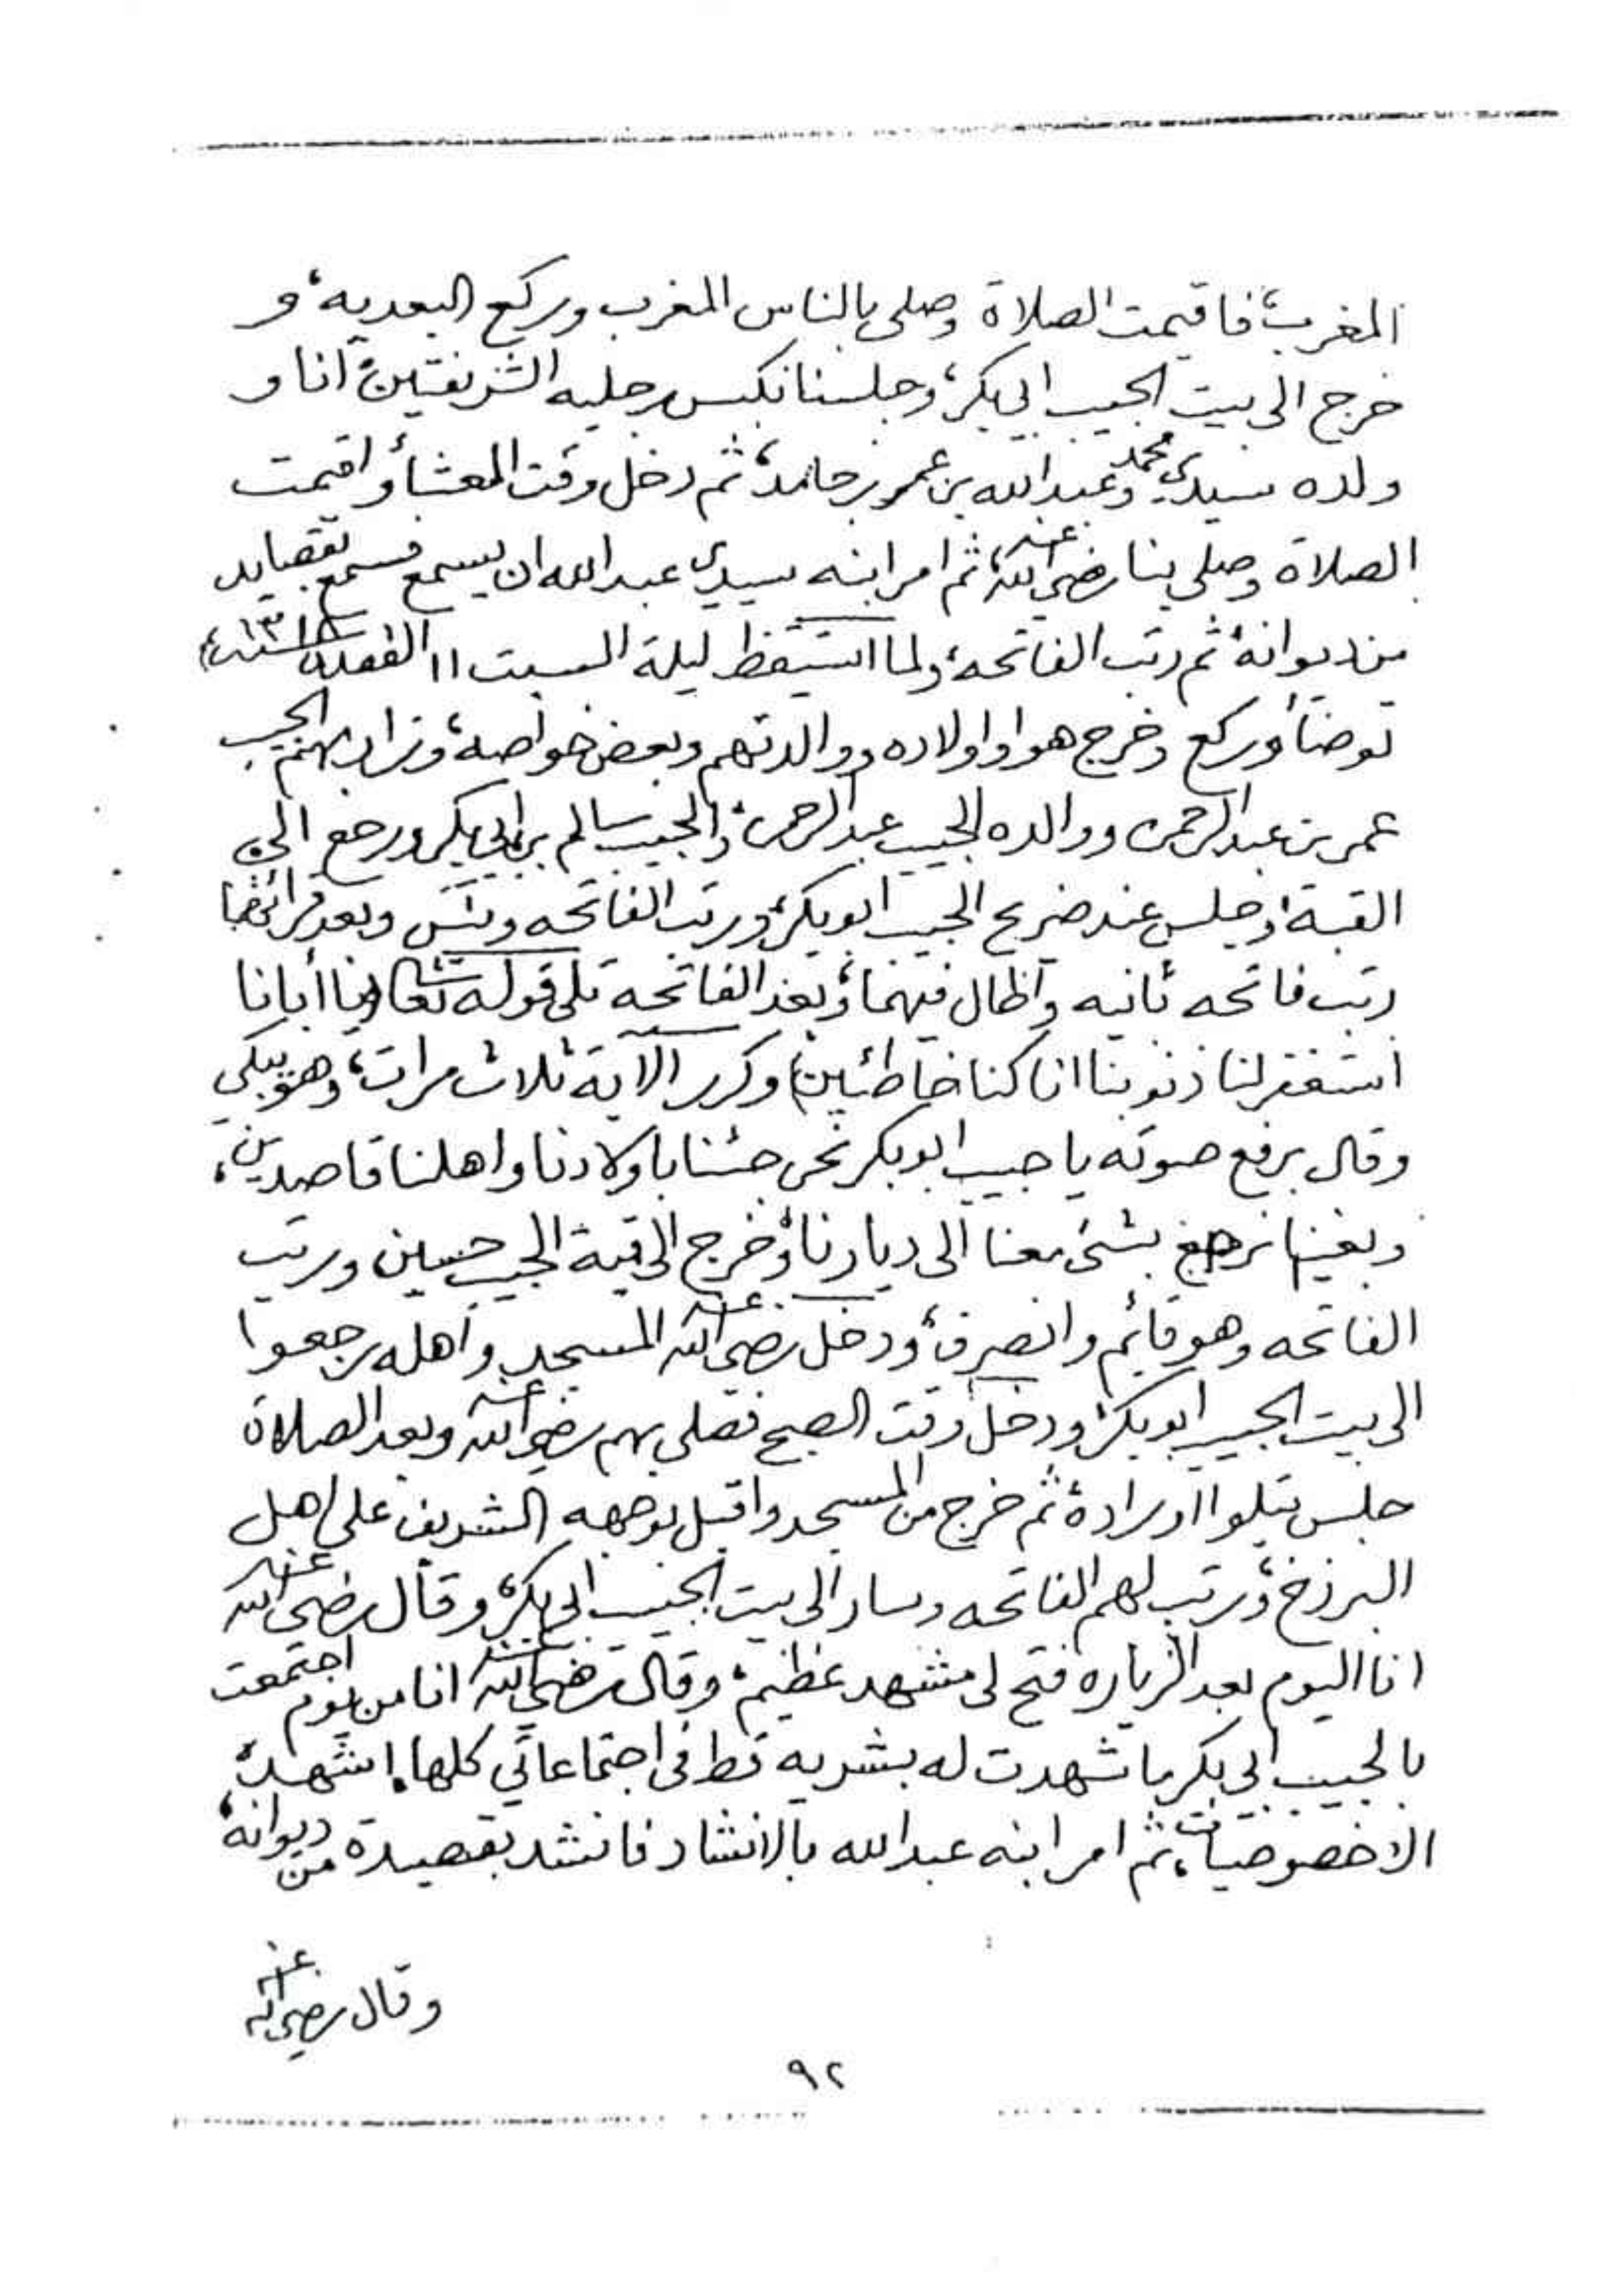 المغرب، فاقيمت الصلاة وصلى بالناس المغرب وركع البعديه، و
خرج الى بيت الحبيب ابي بكر، وجلسنا نكبس رجليه الشريفتين، انا و
ولده سيدي محمد وعبدالله بن عمر بن حامد، ثم دخل وقت العشا، واقيمت
الصلاة وصلى بنا رضي الله عنه، ثم امر ابنه سيدي عبدالله ان يسمع فسمع بقصايد
من ديوانه، ثم رتب الفاتحه، ولما استيقظ ليلة السبت ١١ القعده
توضأ وركع وخرج هو واولاده ووالدتهم وبعض خواصه، وزار بهم الحبيب
عمر بن عبدالرحمن ووالده الحبيب عبدالرحمن، والحبيب سالم بن ابي بكر ورجع الى
القبة، وجلس عند ضريح الحبيب ابوبكر، ورتب الفاتحه ويس وبعد قرائتها
رتب فاتحه ثانيه وأطال فيهما، وبعد الفاتحه تلى قوله تعالى (يا أبانا
استغفر لنا ذنوبنا انا كنا خاطئين) وكرر الآية ثلاث مرات، وهو يبكي
وقال برفع صوته يا حبيب ابوبكر نحن جئنا باولادنا واهلنا قاصدين،
وبغينا نرجع بشئ معنا الى ديارنا، وخرج الى قبة الحبيب حسين ورتب
الفاتحه وهو قائم وانصرف، ودخل رضي الله عنه المسجد وأهله رجعوا
الى بيت الحبيب ابوبكر، ودخل وقت الصبح فصلى بهم رضي الله عنه وبعد الصلاة
جلس يتلوا اوراده، ثم خرج من المسجد واقبل بوجهه الشريف على اهل
البرزخ، ورتب لهم الفاتحه وسار الى بيت الحبيب ابي بكر، وقال رضي الله عنه
انا اليوم بعد الزياره فتح لي مشهد عظيم، وقال رضي الله عنه انا من يوم اجتمعت
بالحبيب ابي بكر ما شهدت له بشريه قط في اجتماعاتي كلها، اشهد
الا خصوصيات، ثم امر ابنه عبدالله بالانشاد فانشد بقصيدة من ديوانه،
وقال رضي الله عنه
٩٢